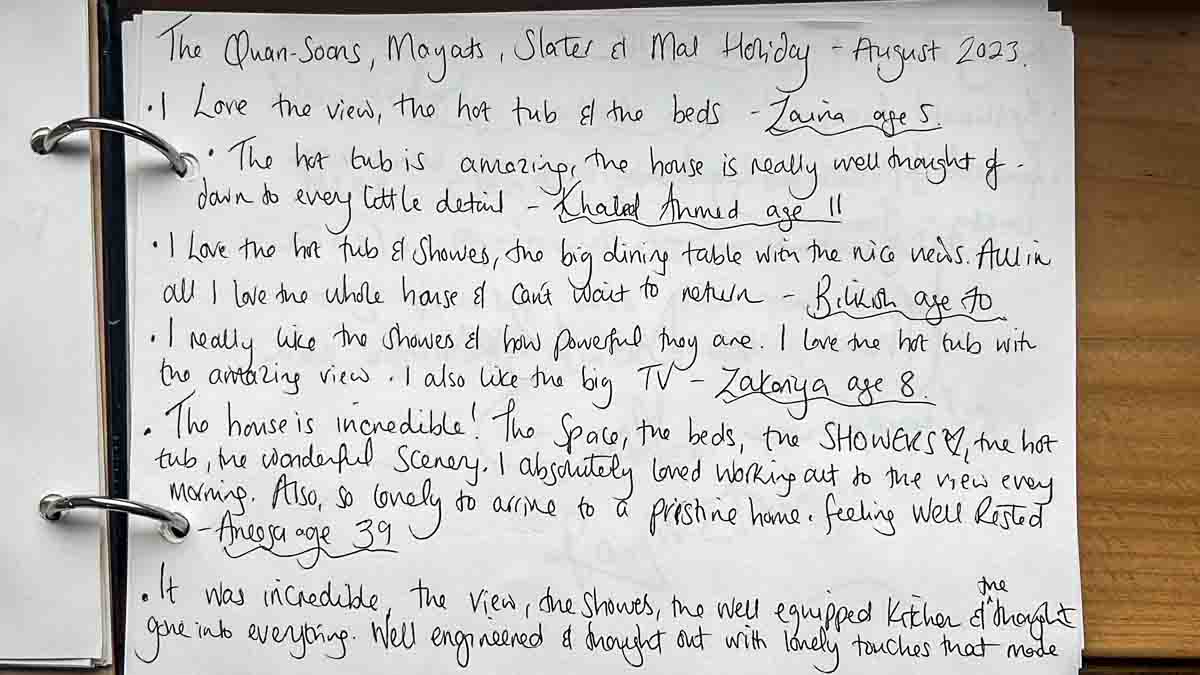 The Quan-Soons, Mayats, Slater & Mal Holiday - August 2023.
· I Love the view, the hot tub & the beds - Zaina age 5.
· The hot tub is amazing, the house is really well thought of -
down to every little detail - Khaled Ahmed age 11
· I Love the hot tub & Showes, the big dining table with the nice veiws. All in
all I love the whole house & can't wait to return - Bilikish age 70
· I really like the showes & how powerful they are. I love the hot tub with
the amazing view. I also like the big TV - Zakariya age 8.
· The house is incredible! The Space, the beds, the SHOWERS ♡, the hot
tub, the wonderful scenery. I absolutely loved working out to the view every
morning. Also, so lovely to arrive to a pristine home. feeling Well Rested
- Aneesa age 39
· It was incredible, the view, the showes, the well equipped Kitchen & the thought
gone into everything. Well engineered & thought out with lovely touches that made